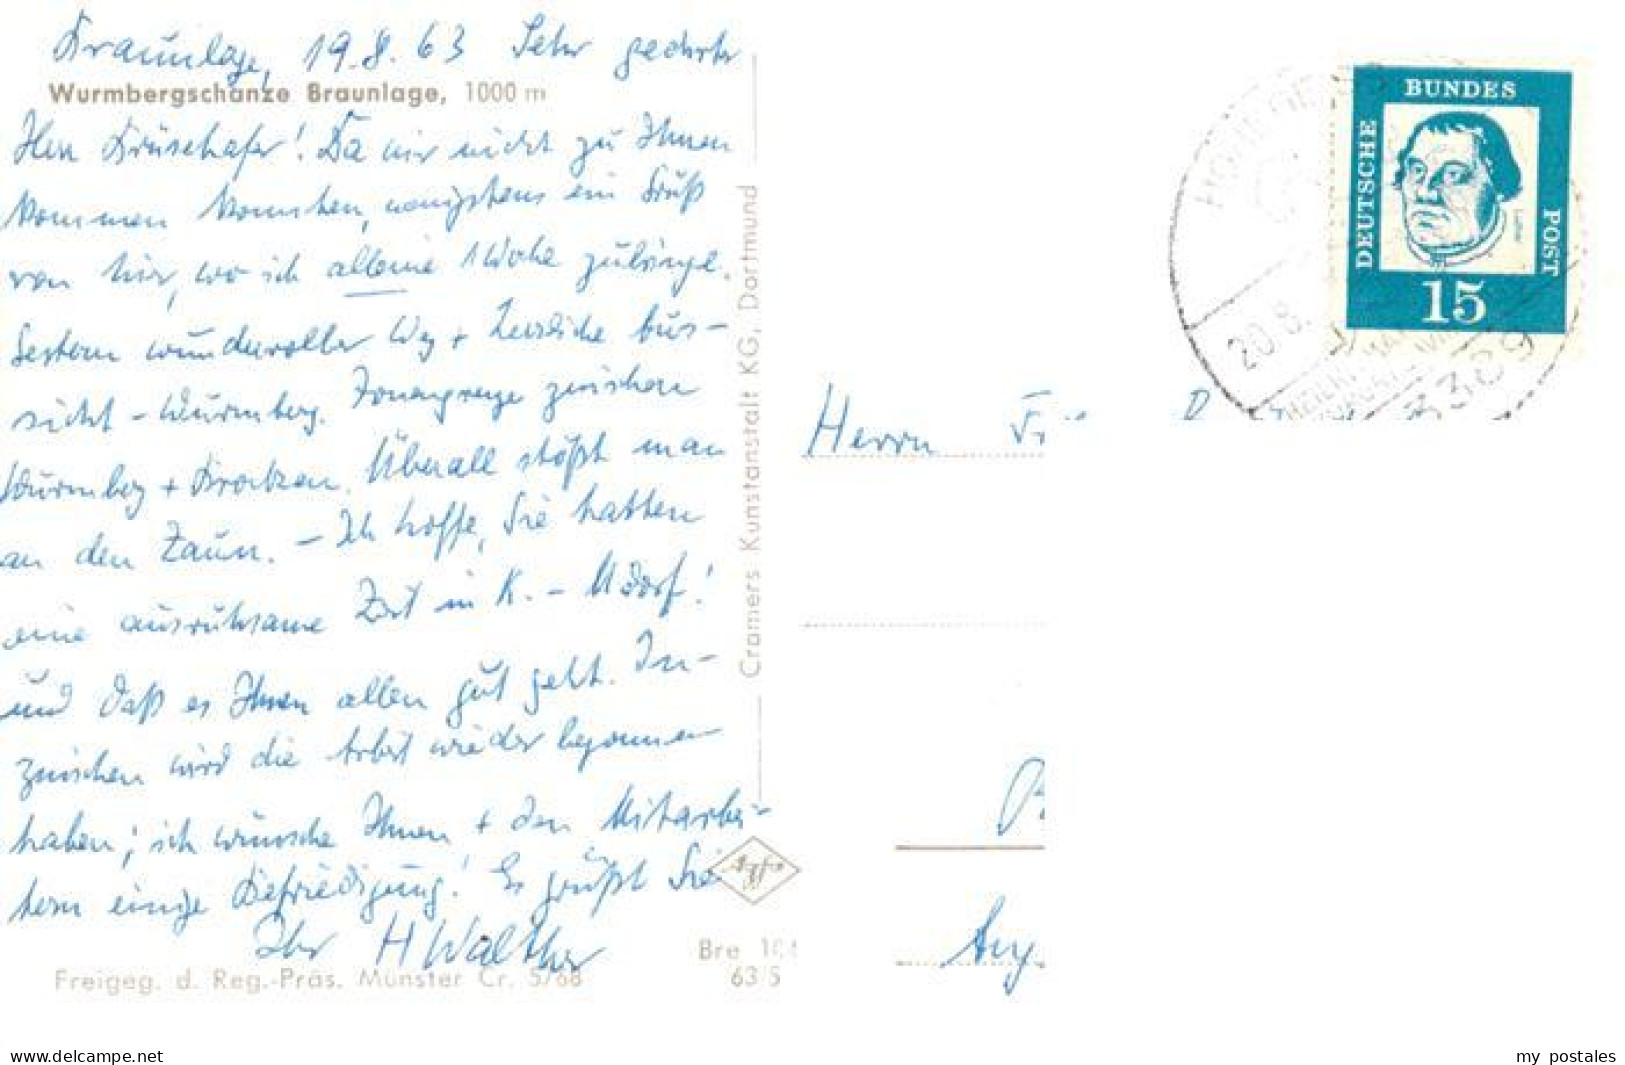 Braunlage, 19.8.63 Sehr geehrter
Wurmbergschanze Braunlage, 1000 m
Herr Brüsehafer! Da wir nicht zu Ihnen
kommen konnten, wenigstens ein Gruß
von hier, wo ich alleine 1 Woche zubringe.
Gestern wundervoller Weg + herrliche Aus-
sicht - Wurmberg. Zonengrenze zwischen
Wurmberg + Brocken. Überall stößt man
an den Zaun. - Ich hoffe, Sie hatten
eine ausruhsame Zeit in K. - Mdorf!
und daß es Ihnen allen gut geht. In-
zwischen wird die Arbeit wieder begonnen
haben; ich wünsche Ihnen + den Mitarbei-
tern einige Befriedigung! Es grüßt Sie
Ihr H Walther
Freigeg. d. Reg.-Präs. Münster Cr. 5768
Cramers Kunstanstalt KG, Dortmund
Agfa
Bre 10
63 5
DEUTSCHE
BUNDES
POST
Luther
15
20.8.
3389
Herrn
www.delcampe.net
my_postales